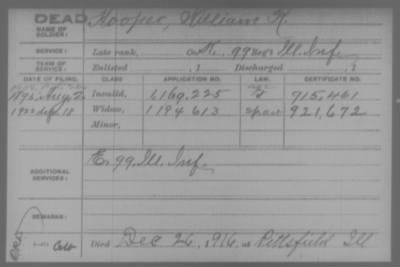 DEAD
NAME OF SOLDIER: Hooper, William K.
SERVICE: Late rank, Co. K, 99 Reg't Ill. Inf.
TERM OF SERVICE: Enlisted , 1 Discharged , 1
DATE OF FILING. CLASS APPLICATION NO. LAW. CERTIFICATE NO.
Aug. 2 Invalid, 1,169,225 915,461
18 Widow, 1194613 921,672
Minor,
ADDITIONAL SERVICES: E. 99 Ill. Inf.
REMARKS:
Died Dec 26, 1916, at Pittsfield Ill